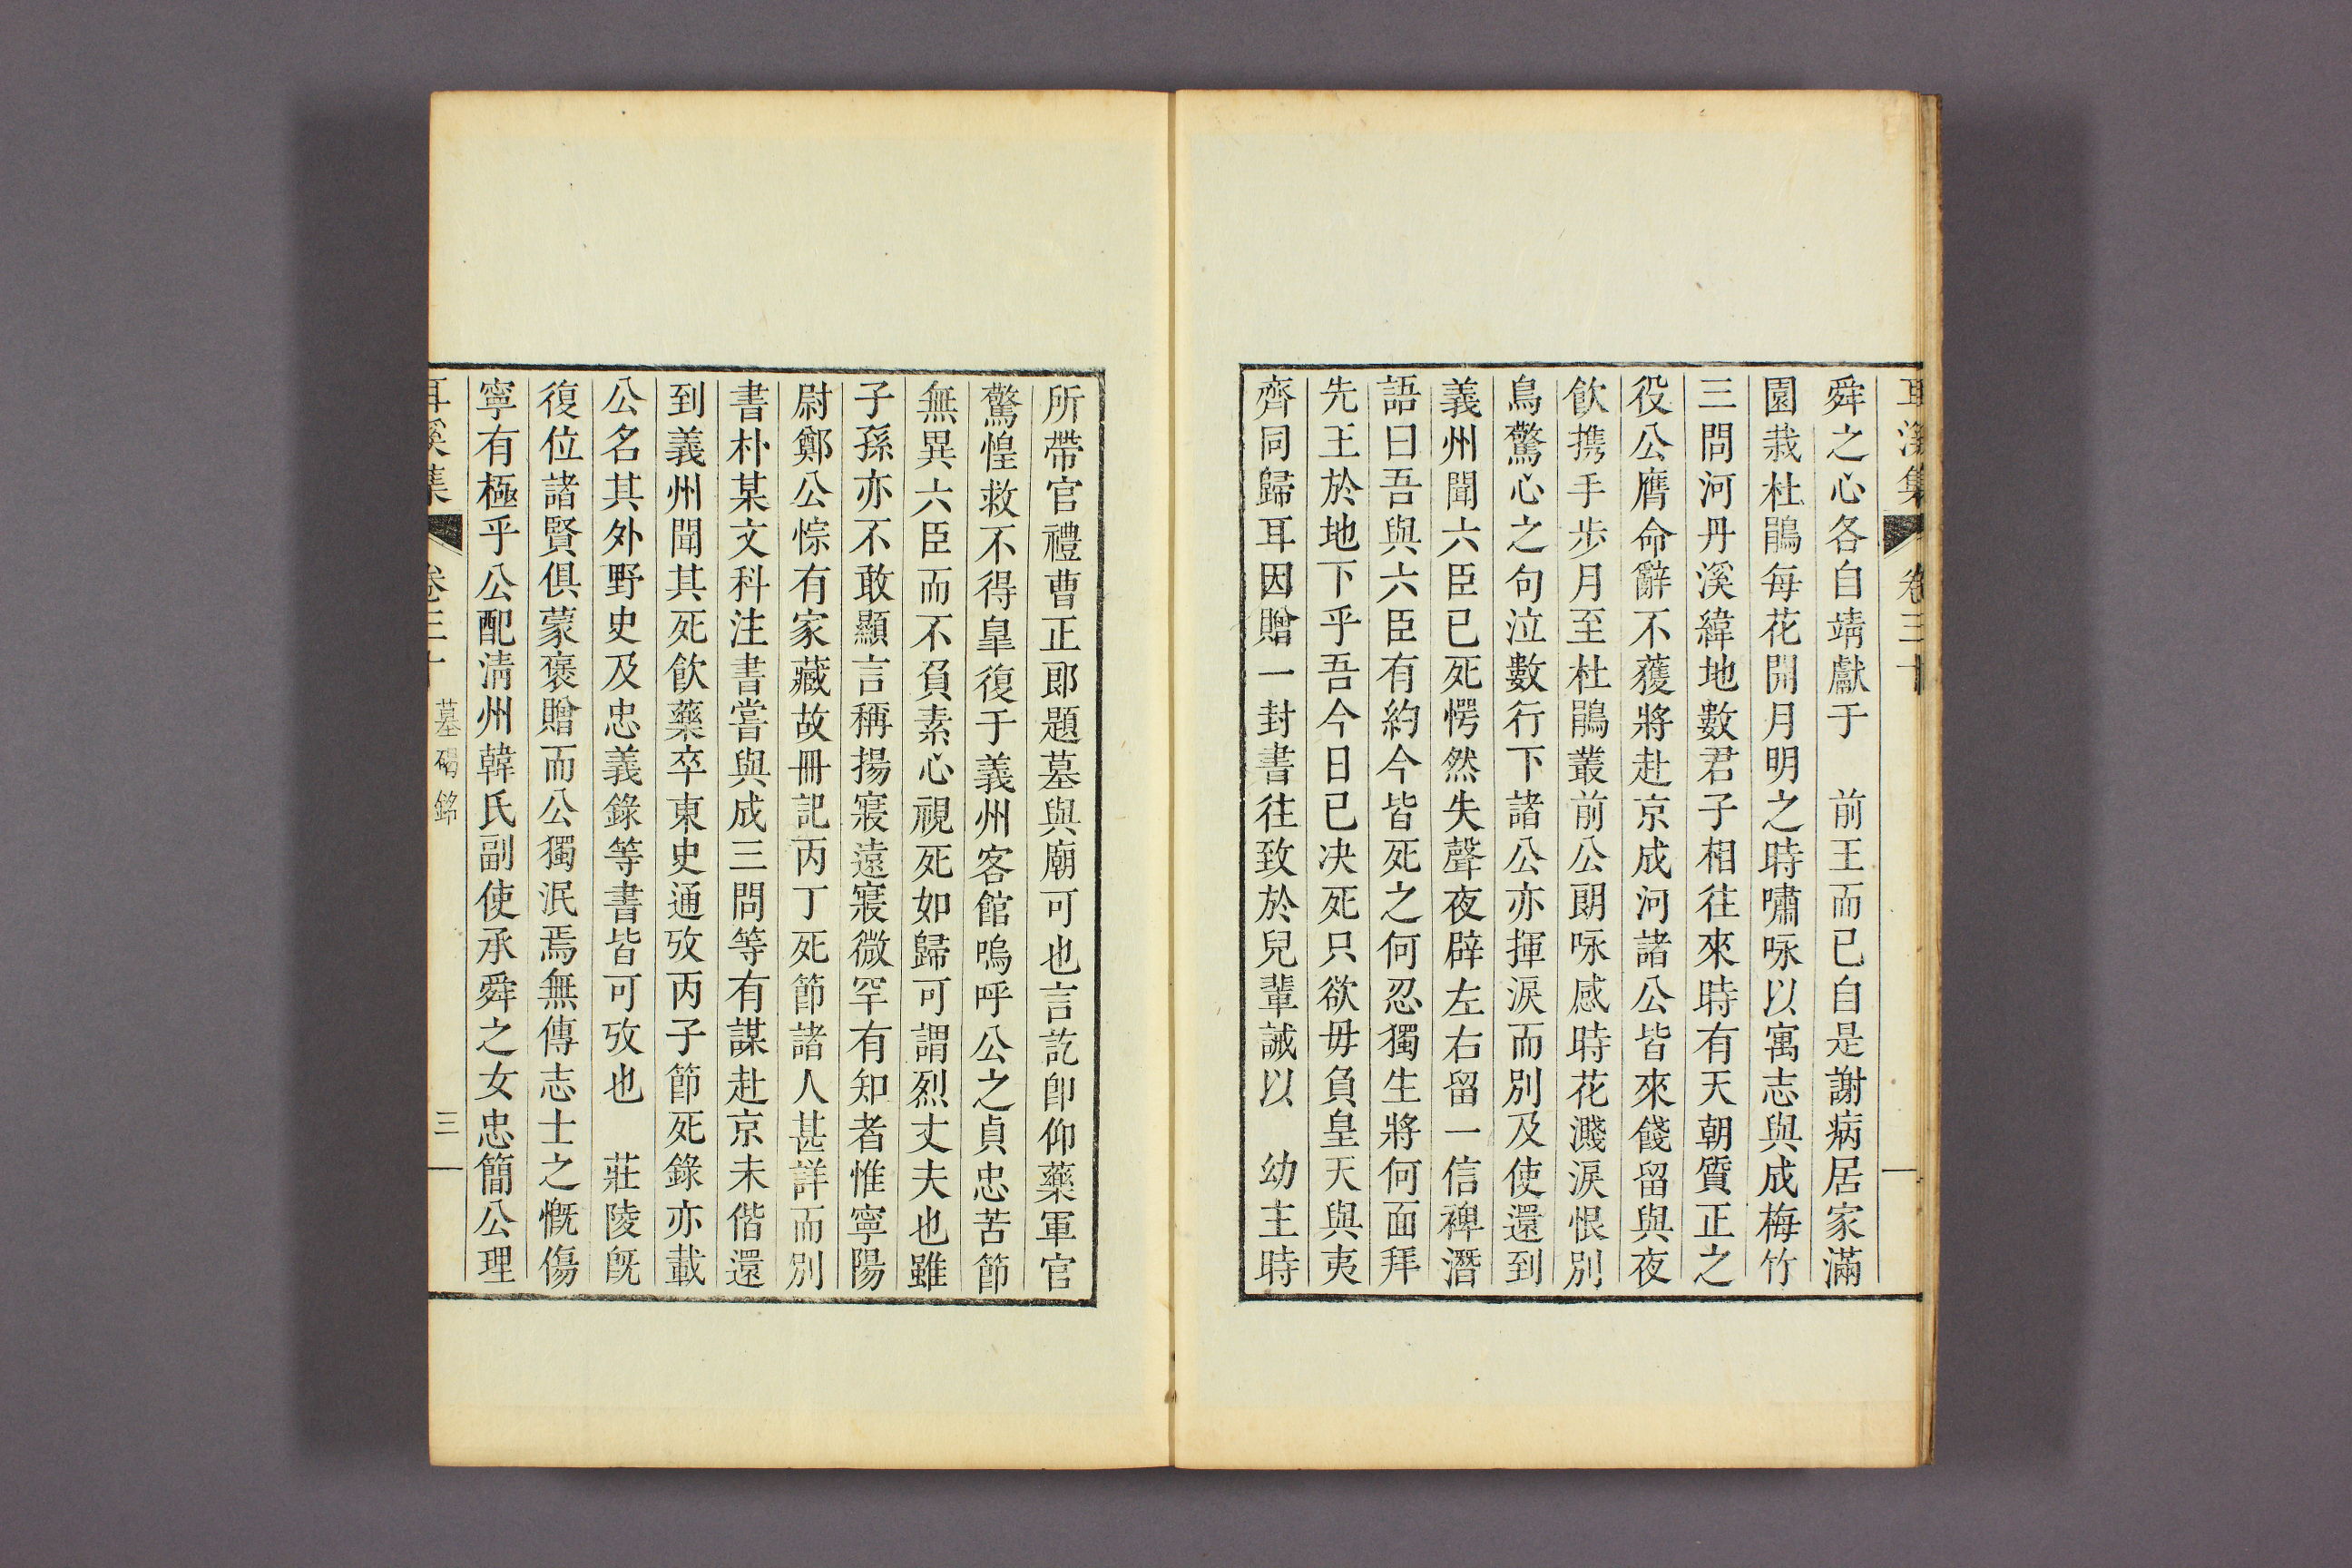 耳溪集 卷三十
舜之心各自靖獻于　前王而已自是謝病居家滿
園栽杜鵑每花開月明之時嘯咏以寓志與成梅竹
三問河丹溪緯地數君子相往來時有天朝質正之
役公膺命辭不獲將赴京成河諸公皆來餞留與夜
飮携手步月至杜鵑叢前公朗咏感時花濺淚恨別
鳥驚心之句泣數行下諸公亦揮淚而別及使還到
義州聞六臣已死愕然失聲夜辟左右留一信裨潛
語曰吾與六臣有約今皆死之何忍獨生將何面拜
先王於地下乎吾今日已决死只欲毋負皇天與夷
齊同歸耳因贈一封書往致於兒輩誡以　幼主時
所帶官禮曹正郎題墓與廟可也言訖卽仰藥軍官
驚惶救不得皐復于義州客館嗚呼公之貞忠苦節
無異六臣而不負素心視死如歸可謂烈丈夫也雖
子孫亦不敢顯言稱揚寢遠寢微罕有知者惟寧陽
尉鄭公悰有家藏故冊記丙丁死節諸人甚詳而別
書朴某文科注書嘗與成三問等有謀赴京未偕還
到義州聞其死飮藥卒東史通攷丙子節死錄亦載
公名其外野史及忠義錄等書皆可攷也　莊陵旣
復位諸賢俱蒙褒贈而公獨泯焉無傳志士之慨傷
寧有極乎公配淸州韓氏副使承舜之女忠簡公理
耳溪集 卷三十 墓碣銘 三